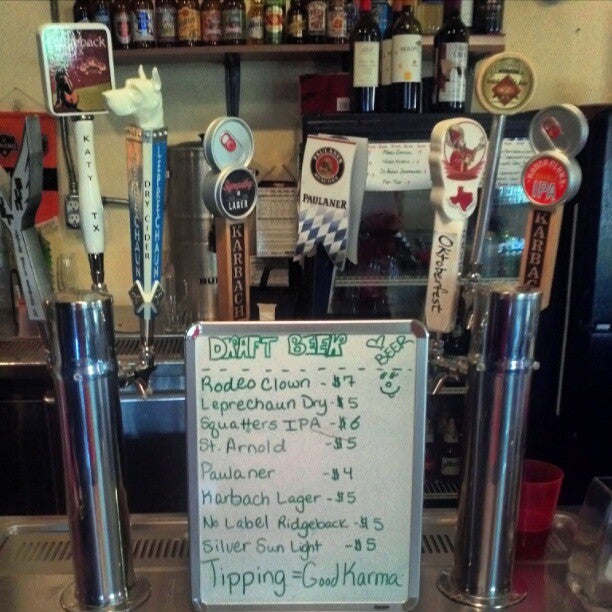 Ridgeback
KATY TX
DRY CIDER
LEPRECHAUN
LAGER
KARBACH
PAULANER
PAULANER
Oktoberfest
RODEO CLOWN
IPA
KARBACH
DRAFT BEER
BEER
Rodeo Clown - $7
Leprechaun Dry - $5
Squatters IPA - $6
St. Arnold - $5
Paulaner - $4
Karbach Lager - $5
No Label Ridgeback - $5
Silver Sun Light - $5
Tipping = Good Karma